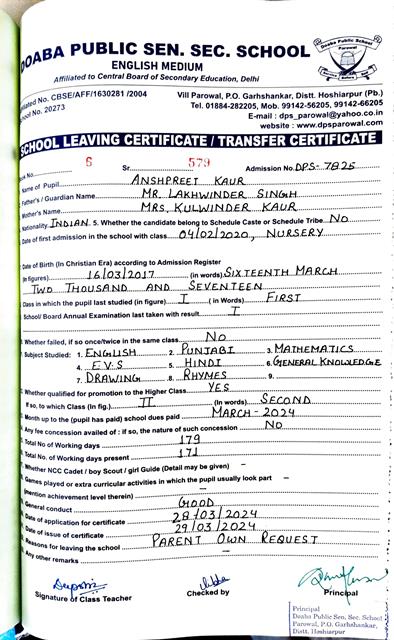 DOABA PUBLIC SEN. SEC. SCHOOL
ENGLISH MEDIUM
Affiliated to Central Board of Secondary Education, Delhi
Doaba Public School
Parowal
Affiliated No. CBSE/AFF/1630281 /2004
School No. 20273
Vill Parowal, P.O. Garhshankar, Distt. Hoshiarpur (Pb.)
Tel. 01884-282205, Mob. 99142-56205, 99142-66205
E-mail : dps_parowal@yahoo.co.in
website : www.dpsparowal.com
SCHOOL LEAVING CERTIFICATE / TRANSFER CERTIFICATE
Book No. 6 Sr. 579 Admission No. DPS-7825
Name of Pupil ANSHPREET KAUR
Father's / Guardian Name MR. LAKHWINDER SINGH
Mother's Name MRS. KULWINDER KAUR
Nationality INDIAN 5. Whether the candidate belong to Schedule Caste or Schedule Tribe NO
Date of first admission in the school with class 04/02/2020, NURSERY
Date of Birth (In Christian Era) according to Admission Register
(In figures) 16/03/2017 (in words) SIXTEENTH MARCH
TWO THOUSAND AND SEVENTEEN
Class in which the pupil last studied (in figure) I (in Words) FIRST
School/ Board Annual Examination last taken with result I
Whether failed, if so once/twice in the same class NO
Subject Studied: 1. ENGLISH 2. PUNJABI 3. MATHEMATICS
4. E.V.S 5. HINDI 6. GENERAL KNOWLEDGE
7. DRAWING 8. RHYMES 9.
Whether qualified for promotion to the Higher Class YES
If so, to which Class (In fig.) II (In Words) SECOND
Month up to the (pupil has paid) school dues paid MARCH-2024
Any fee concession availed of : if so, the nature of such concession NO
Total No. of Working days 179
Total No. of Working days present 171
Whether NCC Cadet / boy Scout / girl Guide (Detail may be given) -
Games played or extra curricular activities in which the pupil usually look part -
(mention achievement level therein) -
General conduct GOOD
Date of application for certificate 28/03/2024
Date of issue of certificate 29/03/2024
Reasons for leaving the school PARENT OWN REQUEST
Any other remarks -
Signature of Class Teacher Checked by Principal
Principal
Doaba Public Sen. Sec. School
Parowal, P.O. Garhshankar,
Distt. Hoshiarpur